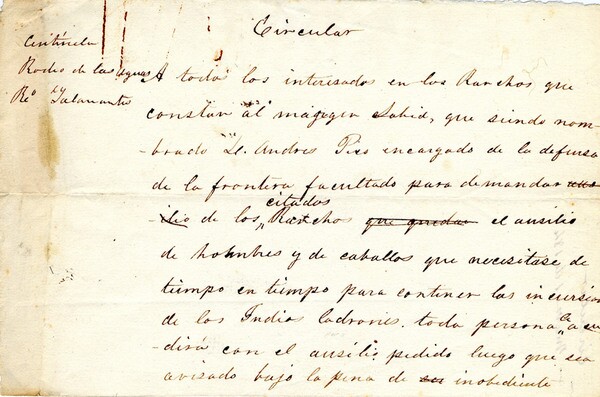 Circular
Centinela
Rodeo de las Aguas
Ro. y Salamantes
A todos los interesados en los Ranchos que
constan al margen Sabid, que siendo nom-
-brado D. Andres Pico encargado de la defensa
de la frontera facultado para demandar aus
-ilio de los citados Ranchos que quedan el ausilio
de hombres y de caballos que necesitase de
tiempo en tiempo para contener las incursion
de los Indios ladrones. toda persona la acu
-dirá con el ausilio pedido luego que sea
avisado bajo la pena de ser inobediente